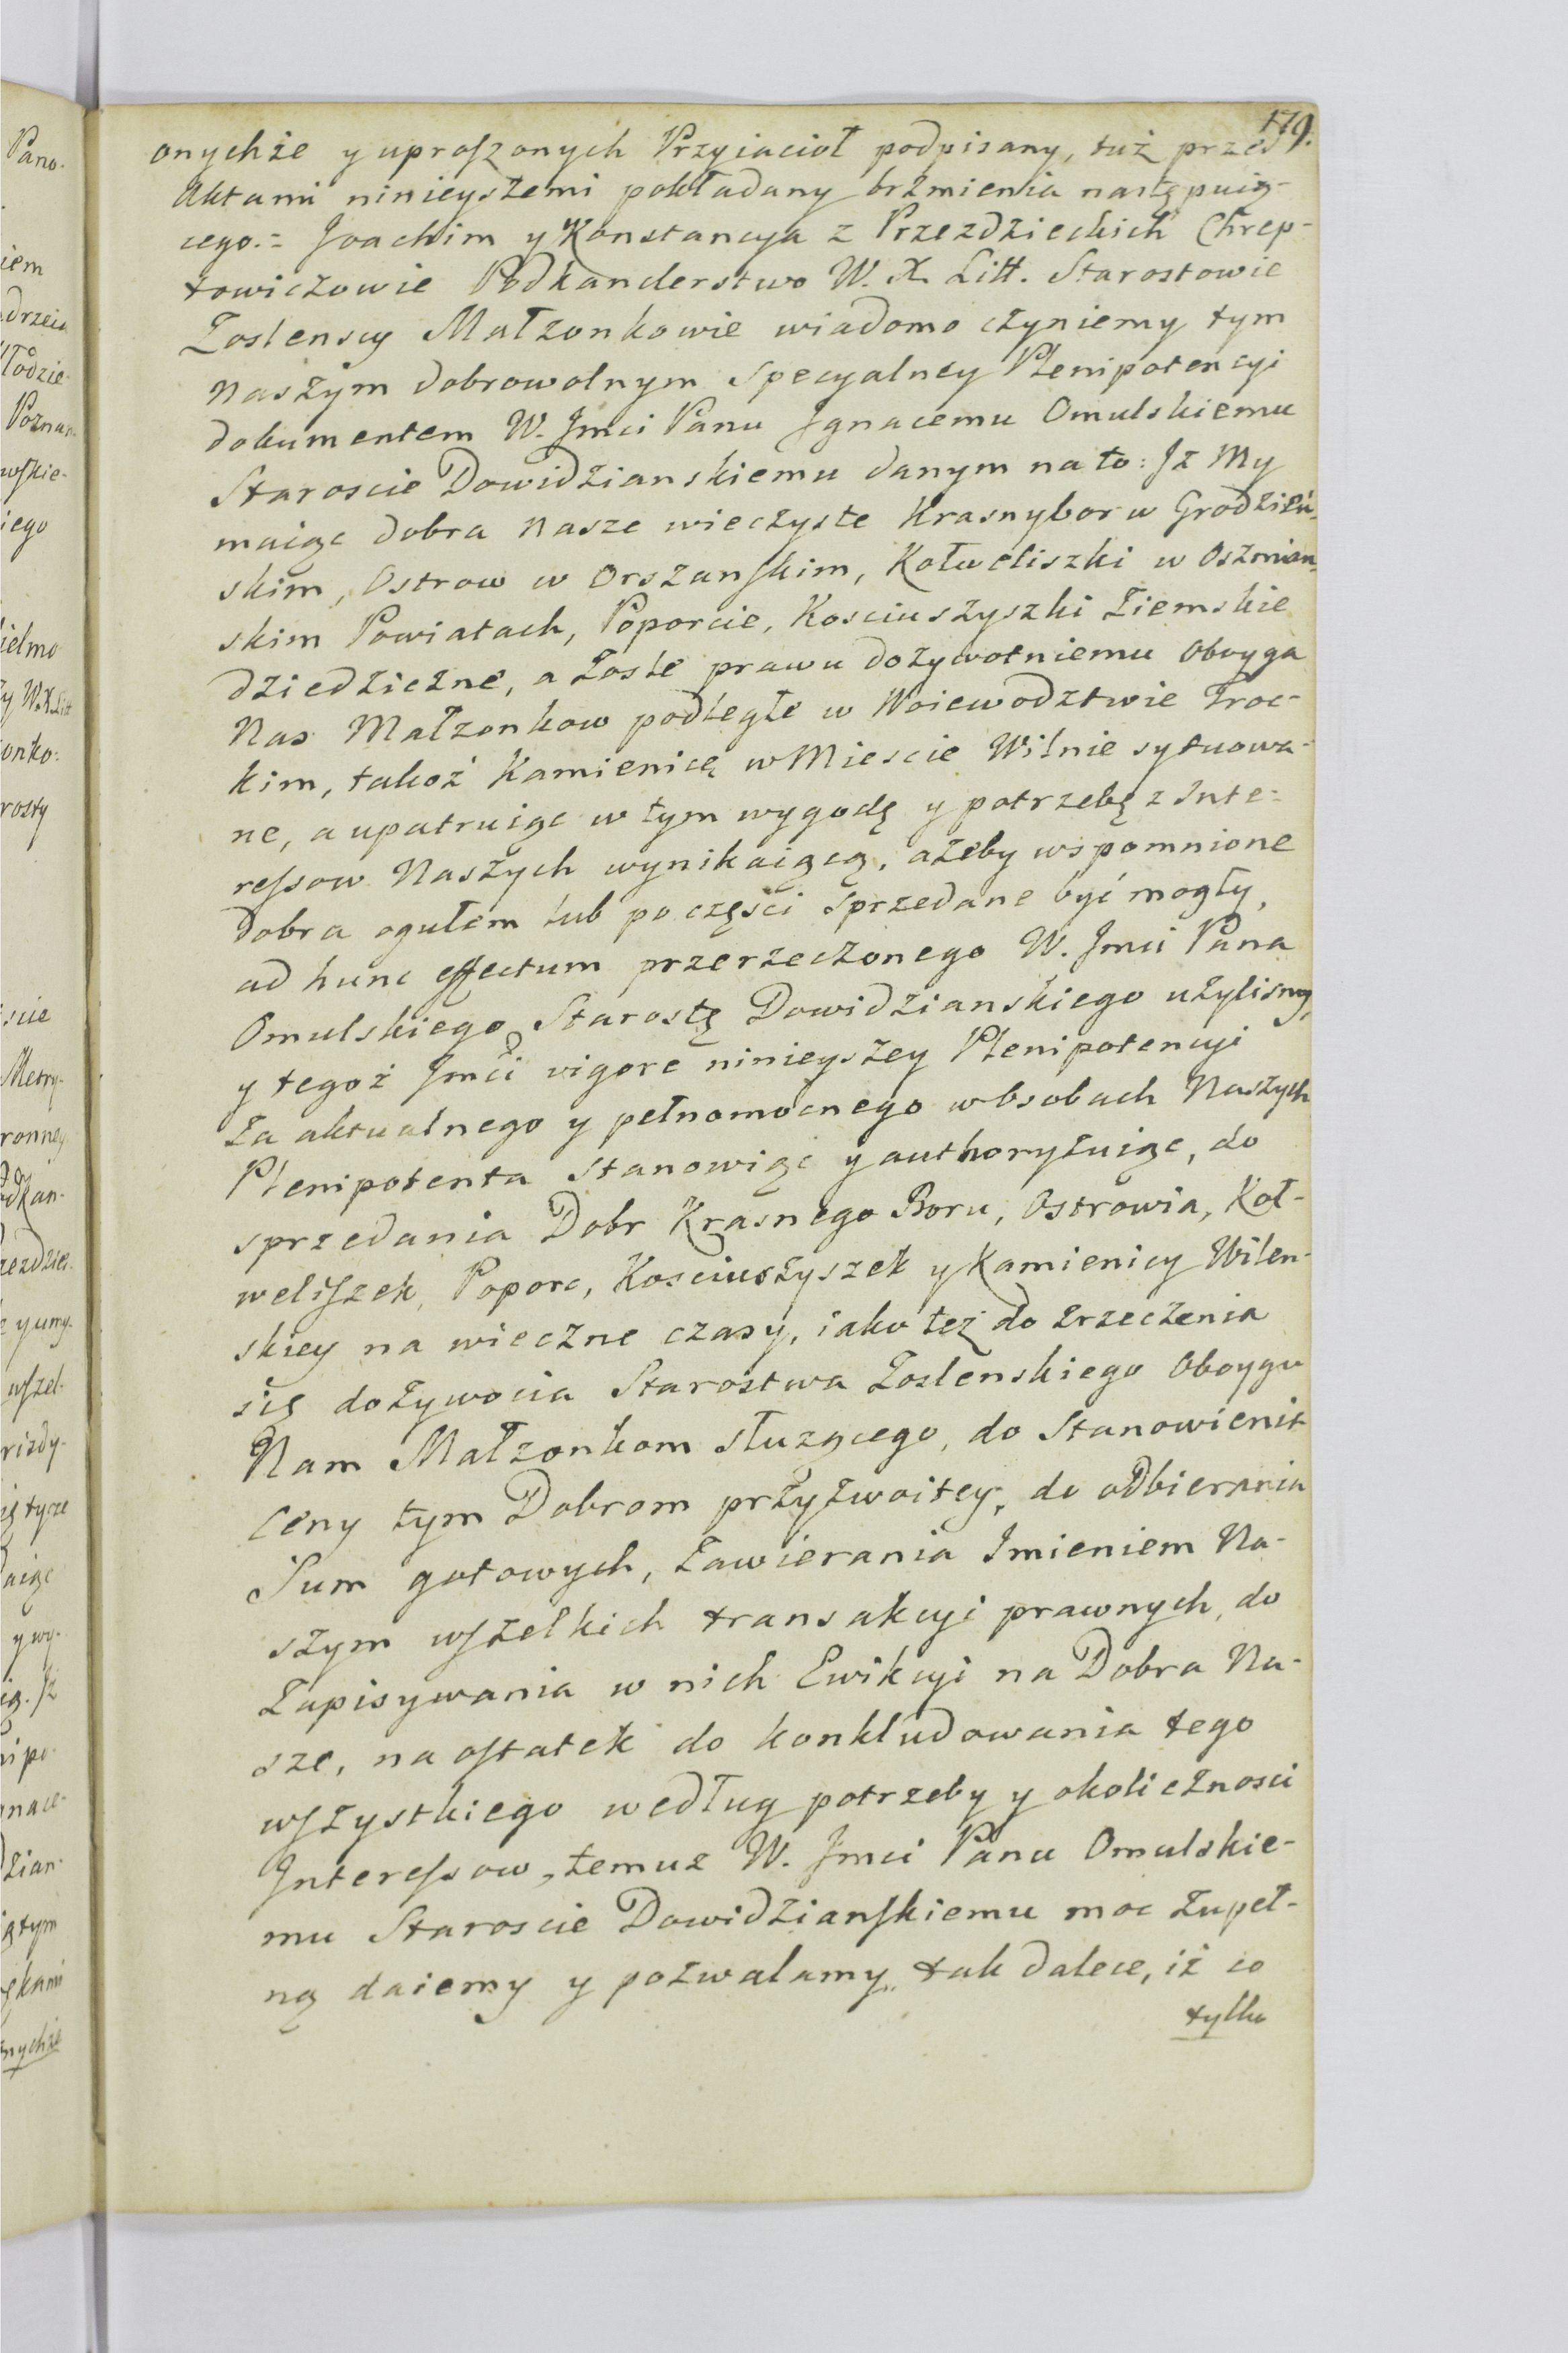 179.
onychże y uproszonych Przyiacioł podpisany, tuż przed
Aktami ninieyszemi pokładany brzmienia następuią-
cego.= Joachim y Konstancya z Przezdzieckich Chrep-
towiczowie Podkanclerstwo W. X. Litt. Starostowie
Zoslenscy Małzonkowie wiadomo czyniemy tym
Naszym dobrowolnym Specyalney Plenipotencyi
dokumentem W. Jmci Panu Jgnacemu Omulskiemu
Staroscie Dowidzianskiemu danym na to: Jż My
maiąc dobra Nasze wieczyste Krasnybor w Grodzień-
skim, Ostrow w Orszanskim, Kołweliszki w Oszmian-
skim Powiatach, Poporcie, Kosciuszyszki Ziemskie
dziedziczne, a Zosle prawu dożywotniemu Oboyga
Nas Małzonkow podległe w Woiewodztwie Troc-
kim, takoż Kamienicę w Miescie Wilnie sytuowa-
ne, a upatruiąc w tym wygodę y potrzebę z Inte-
ressow Naszych wynikaiącą, ażeby wspomnione
Dobra ogułem lub po części sprzedane być mogły,
ad hunc effectum przerzeczonego W. Jmci Pana
Omulskiego Starostę Dowidzianskiego użylismy,
y tegoż Jmci vigore ninieyszey Plenipotencyi
Za aktualnego y pełnomocnego w Osobach Naszych
Plenipotenta Stanowiąc y authoryzuiąc, do
sprzedania Dobr Krasnego Boru, Ostrowia, Koł-
weliszek, Poporc, Kosciuszyszek y Kamienicy Wilen-
skiey na wieczne czasy, iako też do Zrzeczenia
się dożywocia Starostwa Zoslenskiego Oboygu
Nam Małzonkom służącego, do Stanowienia
Ceny tym Dobrom przyzwoitey, do odbierania
Sum gotowych, Zawierania Imieniem Na-
szym wszelkich transakcyi prawnych, do
Zapisywania w nich Ewikcyi na Dobra Na-
sze, na ostatek do konkludowania tego
wszystkiego według potrzeby y okoliczności
Interessow, temuż W. Jmci Panu Omulskie-
mu Staroscie Dowidzianskiemu moc Zupeł-
ną daiemy y pozwalamy, tak dalece, iż co
tylko